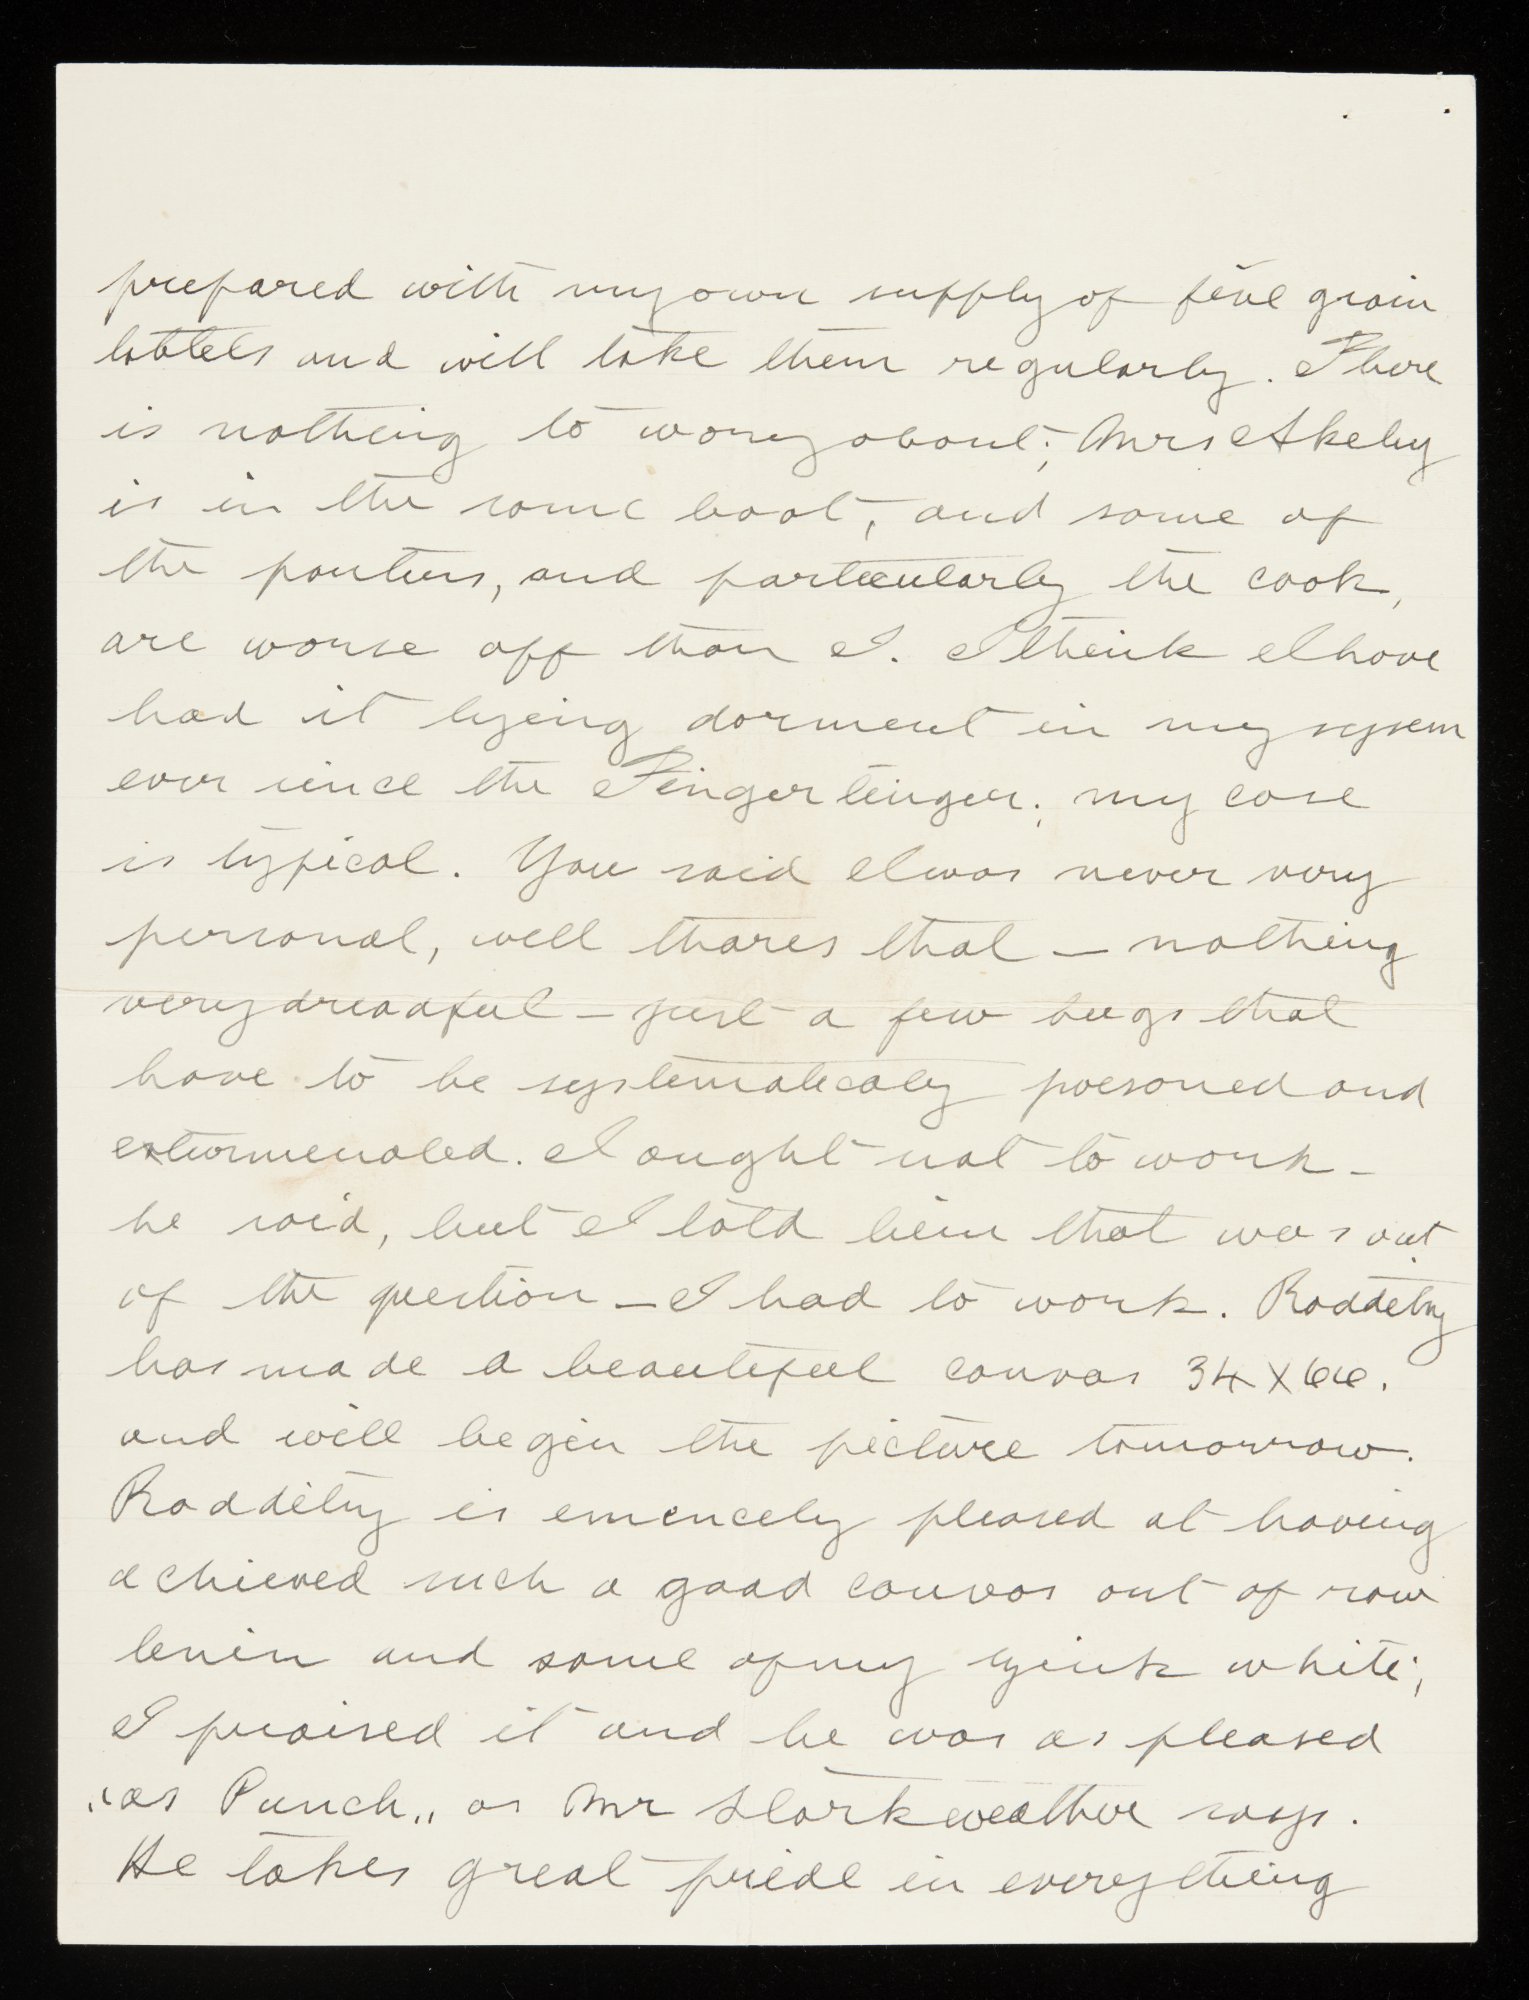 prepared with my own supply of five grain
tabtels and will take them regularly. There
is nothing to worry about; Mrs Akeley
is in the same boat, and some of
the porters, and particularly the cook,
are worse off than I. I think I have
had it lyeing dorment in my sysem
ever since the Tinga tinga; my case
is typical. You said I was never very
personal, well thares that — nothing
very dreadful — just a few bugs that
have to be systematicaly poisoned and
exturmenated. I ought not to work —
he said, but I told him that was out
of the question — I had to work. Raddatz
has made a beautiful canvas 34 X 66.
and will begin the picture tomorrow.
Raddatz is emencely pleased at having
achieved such a good canvas out of raw
lenin and some of my zink white;
I praised it and he was as pleased
"as Punch" as Mr Starkweather says.
He takes great pride in everything